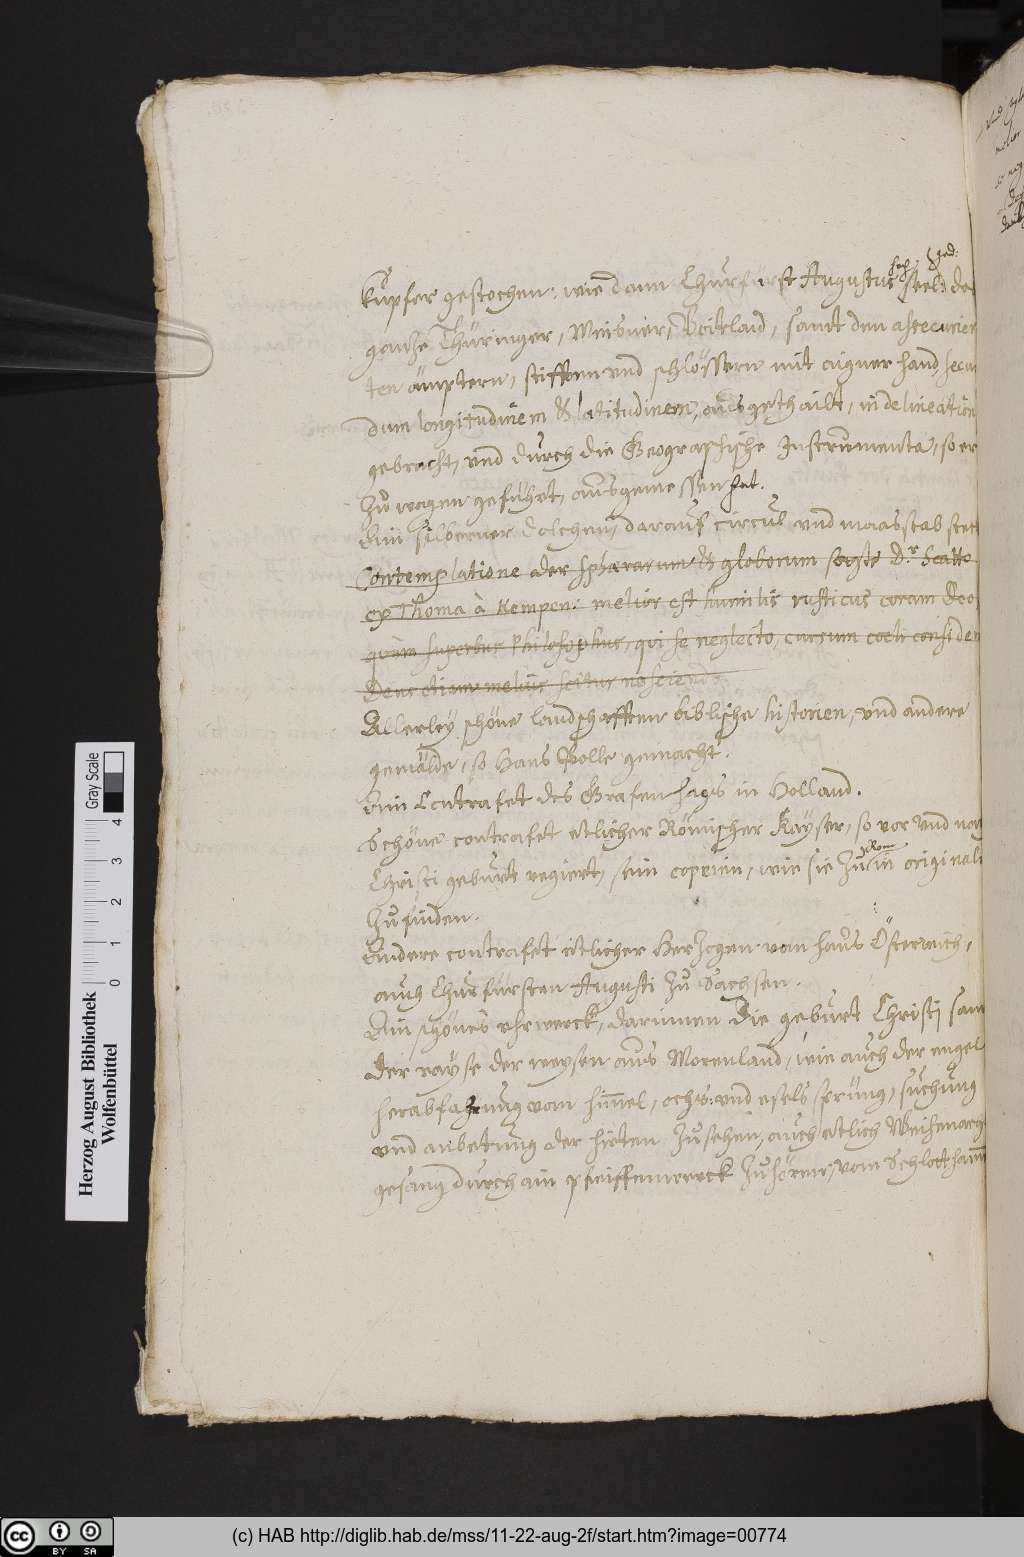 hoch: ged:
kupfer gestochen: wie dann Churfürst Augustus seel: de
gantze Thüringer, Meisner, Voitland, samt den assecurier
ten ämptern, stifften und schlössern mit aigner hand, secun
dum longitudinem & latitudinem, ausgethailt, in delineation
gebracht, und durch die Geographische Instrumenta, so er
zu wagen gefuhrt, ausgemessen hat.
Ein silberner dolchen, darauf circul und maasstab stett
Contemplatione der sphaerarum & globorum sagte Dr. Scatto
ex Thoma à Kempen: melior est humilis rusticus coram Deo
quam superbus Philosophus, qui se neglecto, cursum coeli consider
Deus etiam melius scitur nesciendo
Allerley schöne landschafften biblische historien, und andere
gemälde, so Hans Bolle gemacht.
Ein Contrafet des Grafenhags in Holland.
Schöne contrafet etlicher Römischer Kayser, so vor und nac
Christi geburt regiert, sein copeien, wie sie zu Rom in original
zufinden.
Andere contrafet etlicher Herzogen vom haus Österreich,
auch Churfürsten Augusti zu Sachsen.
Ein schönes uhrwerck, darinnen die geburt Christi samt
der rayse der weysen aus Morenland, wie auch der engel
herabfahrung vom himmel, ochs: und esels sprüng, suchung
und anbetung der hirten zusehen, auch etlich Weihenacht
gesang durch ain pfeiffenwerck zuhören, vom Schlotthaim
Gray Scale
0 1 2 3 4
Herzog August Bibliothek
Wolfenbüttel
cc BY SA
(c) HAB http://diglib.hab.de/mss/11-22-aug-2f/start.htm?image=00774